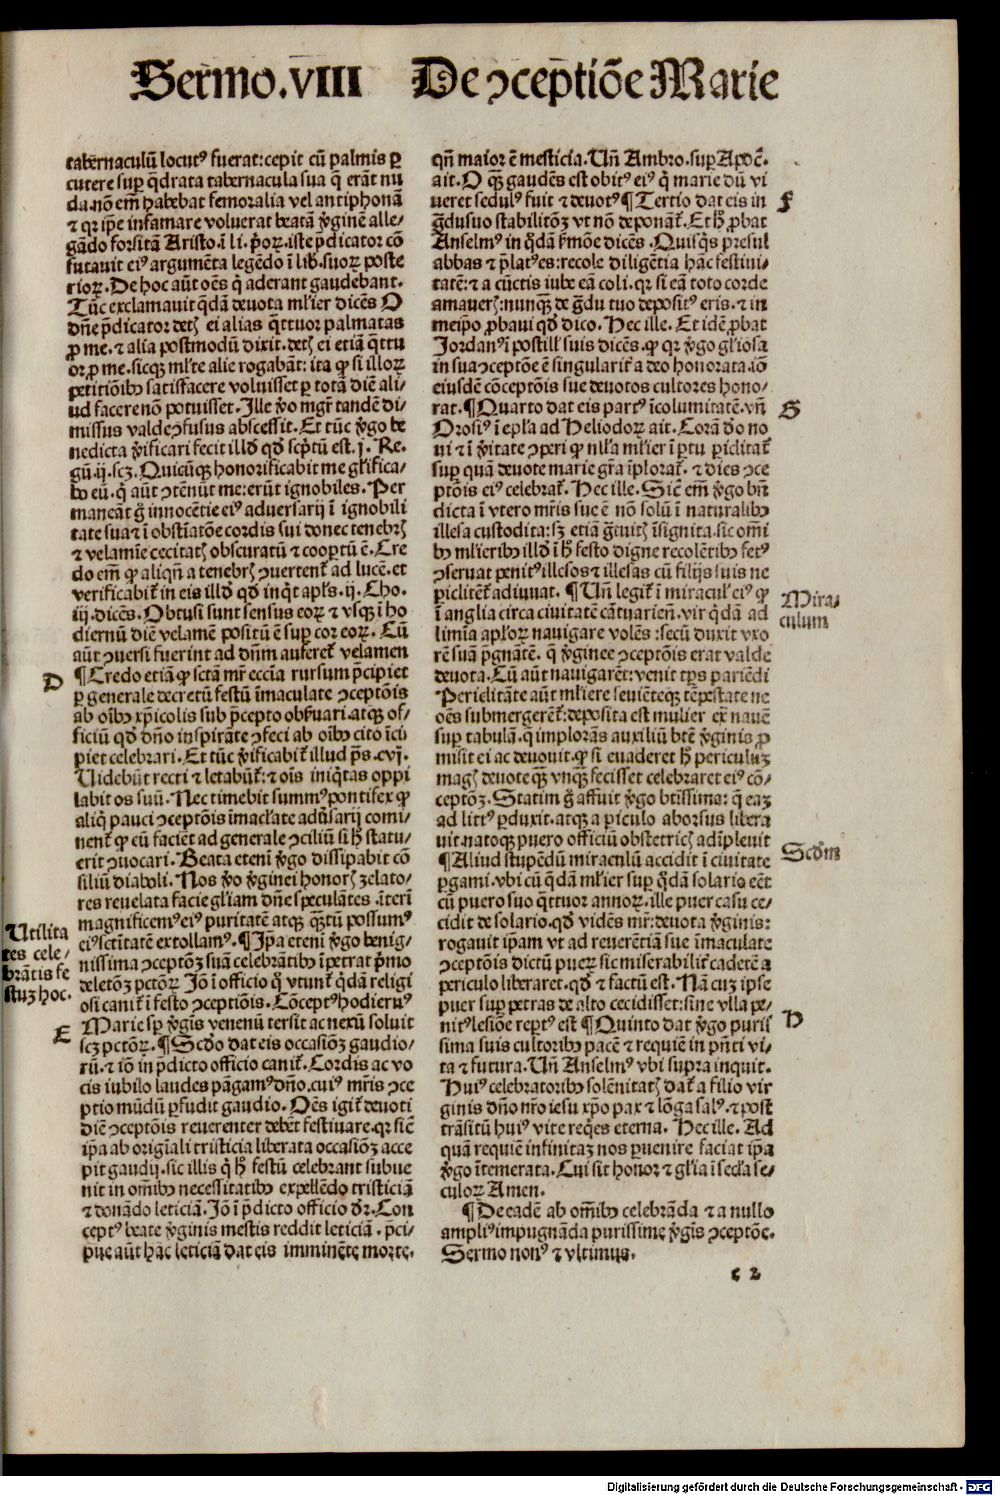 Sermo.VIII De ꝯcept̄iōe Marie
tabernaculū locutꝰ fuerat:cepit cū palmis ꝑ
cutere suꝑ q̄drata tabernacula sua q̄ erāt nu
da.nō em̄ habebat femoralia vel antiphonā
⁊ qꝛ ip̄e infamare voluerat beatā v̓ginē alle-
gādo forsitā Aristo.ī li. p̓oꝝ. iste p̄dicator cō
futauit eiꝰ argumēta legēdo ī lib̓. suoꝝ poste
rioꝝ. De hoc aūt oēs q̇ aderant gaudebant.
Tūc exclamauit q̄dā deuota ml̓ier dicēs O
dn̄e p̄dicator detꝭ ei alias q̇ttuor palmatas
ꝓ me. ⁊ alia postmodū dixit. detꝭ ei etiā q̇ttu
or ꝓ me. sicqꝫ ml̓te alie rogabāt: ita ꝙ si illoꝝ
petitiōibꝰ satisfacere voluisset ꝑ totā diē ali-
ud facere nō potuisset. Ille v̓o mgr̄ tandē di-
missus valde ꝯfusus abscessit. Et tūc v̓go be
nedicta v̓ificari fecit illd̓ qd̓ sc̓ptū est .j. Re-
gū.ij.scꝫ. Quicūqꝫ honorificabit me gl̓ifica-
bo eū. q̇ aūt ꝯtēnūt me: erūt ignobiles. Per
maneāt g̓ innocētie eiꝰ aduersarij ī ignobili
tate sua ⁊ ī obstīatōe cordis sui donec tenebrꝭ
⁊ velamīe cecitatꝭ obscuratū ⁊ cooꝑtū ē. Cre
do em̄ ꝙ aliqn̄ a tenebrꝭ ꝯuertent̉ ad lucē. et
verificabit̉ in eis illd̓ qd̓ inq̇t apl̓s. ij. Cho.
iij. dicēs. Obtusi sunt sensus eoꝝ ⁊ vsqꝫ ī ho
diernū diē velamē positū ē suꝑ cor eoꝝ. Cū
aūt ꝯuersi fuerint ad dn̄m auferet̉ velamen
D
¶Credo etiā ꝙ sctā mr̄ eccīa rursum p̄cipiet
ꝑ generale decretū festū īmaculate ꝯceptōis
ab oībꝰ xp̄icolis sub p̄cepto obẜuari.atqꝫ of-
ficiū qd̓ dn̄o inspirāte ꝯfeci ab oībꝰ cito īci
piet celebrari. Et tūc v̓ificabit̉ illud p̄s. cvj.
Uidebūt recti ⁊ letabūt̉: ⁊ oīs iniq̇tas oppi
labit os suū. Nec timebit summꝰ pontifex ꝙ
aliq̇ pauci ꝯceptōis īmacl̓ate adūsarij comi-
nent̉ ꝙ cū faciēt ad generale ꝯciliū si ħ statu-
erit ꝯuocari. Beata eteni v̓go dissipabit cō
siliū diaboli. Nos v̓o v̓ginei honorꝭ zelato-
res reuelata facie gl̓iam dn̄e speculātes. īteri
magnificemꝰ eiꝰ puritatē atqꝫ q̄ꝫtū possumꝰ
Utilita
tes cele-
brātis fe
stuꝫ hoc.
eiꝰ sctītatē extollamꝰ. ¶Ip̄a eteni v̓go benig-
nissima ꝯceptōꝫ suā celebrātibꝰ īpetrat p̓mo
deletōꝫ pctōꝝ. Jō ī officio q̊ vtunt̉ q̇dā religi
osi canit̉ ī festo ꝯceptiōis. Cōceptꝰ hodiernꝰ
E
Marie sꝑ v̓gīs venenū tersit ac nexū soluit
scꝫ pctōꝝ. ¶Scd̓o dat eis occasiōꝫ gaudio-
rū. ⁊ iō in p̄dicto officio canit̉. Cordis ac vo
cis iubilo laudes pāgamꝰ dn̄o. cuiꝰ mr̄is ꝯce
ptio mūdū ꝑfudit gaudio. Oēs igit̉ deuoti
diē ꝯceptōis reuerenter debēt festiuare. qꝛ sic̄
ip̄a ab origīali tristicia liberata occasiōꝫ acce
pit gaudij. sic illis q̇ ħ festū celebrant subue
nit in om̄ibꝰ necessitatibꝰ expellēdo tristiciā
⁊ donādo leticiā. Jō ī p̄dicto officio dr̄. Con
ceptꝰ beate v̓ginis mestis reddit leticiā. p̄ci-
pue aūt hāc leticiā dat eis imminēte morte.
qn̄ maior ē mesticia. Un̄ Ambro. suꝑ Apoc̄.
ait. O q̄ꝫ gaudēs est obitꝰ eiꝰ q̇ marie dū vi
ueret sedulꝰ fuit ⁊ deuotꝰ ¶Tertio dat eis in
F
g̊du suo stabilitōꝫ vt nō deponāt̉. Et ħ ꝓbat
Anselmꝰ in q̊dā ẜmōe dicēs. Quisq̇s presul
abbas ⁊ p̄latꝰ es: recole diligētia hāc festiui-
tatē: ⁊ a cūctis iube eā coli. qꝛ si eā toto corde
amauerꝭ: nunq̄ꝫ de g̊du tuo depositꝰ eris. ⁊ in
meip̄o ꝓbaui qd̓ dico. Hec ille. Et idē ꝓbat
Jordanꝰ ī postill̓ suis dicēs. ꝙ qꝛ v̓go gl̓iosa
in sua ꝯceptōe ē singularit̉ a deo honorata. iō
eiusdē cōceptōis sue deuotos cultores hono-
rat. ¶Quarto dat eis partꝰ īcolumitatē. vn̄
G
Orosiꝰ ī epl̓a ad Heliodoꝝ ait. Corā dō no
ui ⁊ ī v̓itate ꝯperi ꝙ nll̓a ml̓ier ī ꝑtu ꝑiclitat̉
suꝑ quā deuote marie gr̄a īplorat̉. ⁊ dies ꝯce
ptōis eiꝰ celebrat̉. Hec ille. Sic̄ em̄ v̓go bn̄
dicta ī vtero mr̄is sue ē nō solū ī naturalibꝰ
illesa custodita: sꝫ etiā g̊tuitꝭ īsignita. sic om̄i
bꝰ ml̓ieribꝰ illd̓ ī ħ festo digne recolētibꝰ fetꝰ
ꝯseruat penitꝰ illesos ⁊ illesas cū filijs suis ne
ꝑiclitēt̉ adiuuat. ¶Un̄ legit̉ ī miracul̓ eiꝰ ꝙ
Mira-
culum
ī anglia circa ciuitatē cātuarien̄. vir q̇dā ad
limīa apl̓oꝝ nauigare volēs: secū duxit vxo
rē suā p̄gnātē. q̄ v̓ginee ꝯceptōis erat valde
deuota. Cū aūt nauigarēt: venit tp̄s pariēdi
Periclitāte aūt ml̓iere seuiēteqꝫ tēpestate ne
oēs submergerēt̉: deposita est mulier ex nauē
suꝑ tabulā. q̄ implorās auxiliū bt̄e v̓ginis ꝓ
misit ei ac deuouit. ꝙ si euaderet ħ periculuꝫ
magꝭ deuote q̄ꝫ vnq̄ꝫ fecisset celebraret eiꝰ cō-
ceptōꝫ. Statim g̓ affuit v̓go btīssima: q̄ eaꝫ
ad litꝰ ꝑduxit. atqꝫ a ꝑiculo aborsus libera
uit. natoqꝫ puero officiū obstetricꝭ adīpleuit
¶Aliud stupēdū miraculū accidit ī ciuitate
Scd̓m
ꝑgami. vbi cū q̄dā ml̓ier suꝑ q̊dā solario eēt
cū puero suo q̇ttuor annoꝝ. ille puer casu ce-
cidit de solario. qd̓ vidēs mr̄: deuota v̓ginis:
rogauit ip̄am vt ad reuerētiā sue īmaculate
ꝯceptōis dictū pueꝝ sic miserabilit̉ cadētē a
periculo liberaret. qd̓ ⁊ factū est. Nā cuꝫ ip̄se
puer suꝑ petras de alto cecidisset: sine vlla pe-
nitꝰ lesiōe reptꝰ est ¶Quinto dat v̓go puris̓
H
sima suis cultoribꝰ pacē ⁊ requiē in pn̄ti vi-
ta ⁊ futura. Un̄ Anselmꝰ vbi supra inquit.
Huiꝰ celebratoribꝰ solēnitatꝭ dat̉ a filio vir
ginis dn̄o nr̄o iesu xp̄o pax ⁊ lōga salꝰ. ⁊ post
trāsitū huiꝰ vite reqes eterna. Hec ille. Ad
quā requiē infinitaꝫ nos ꝑuenire faciat ip̄a
v̓go ītemerata. Cui sit honor ⁊ gl̓ia ī secl̓a se-
culoꝝ Amen.
¶De eadē ab om̄ibꝰ celebrāda ⁊ a nullo
ampliꝰ impugnāda purissime v̓gīs ꝯceptōe.
Sermo nonꝰ ⁊ vltimus.
c 2
Digitalisierung gefördert durch die Deutsche Forschungsgemeinschaft - DFG